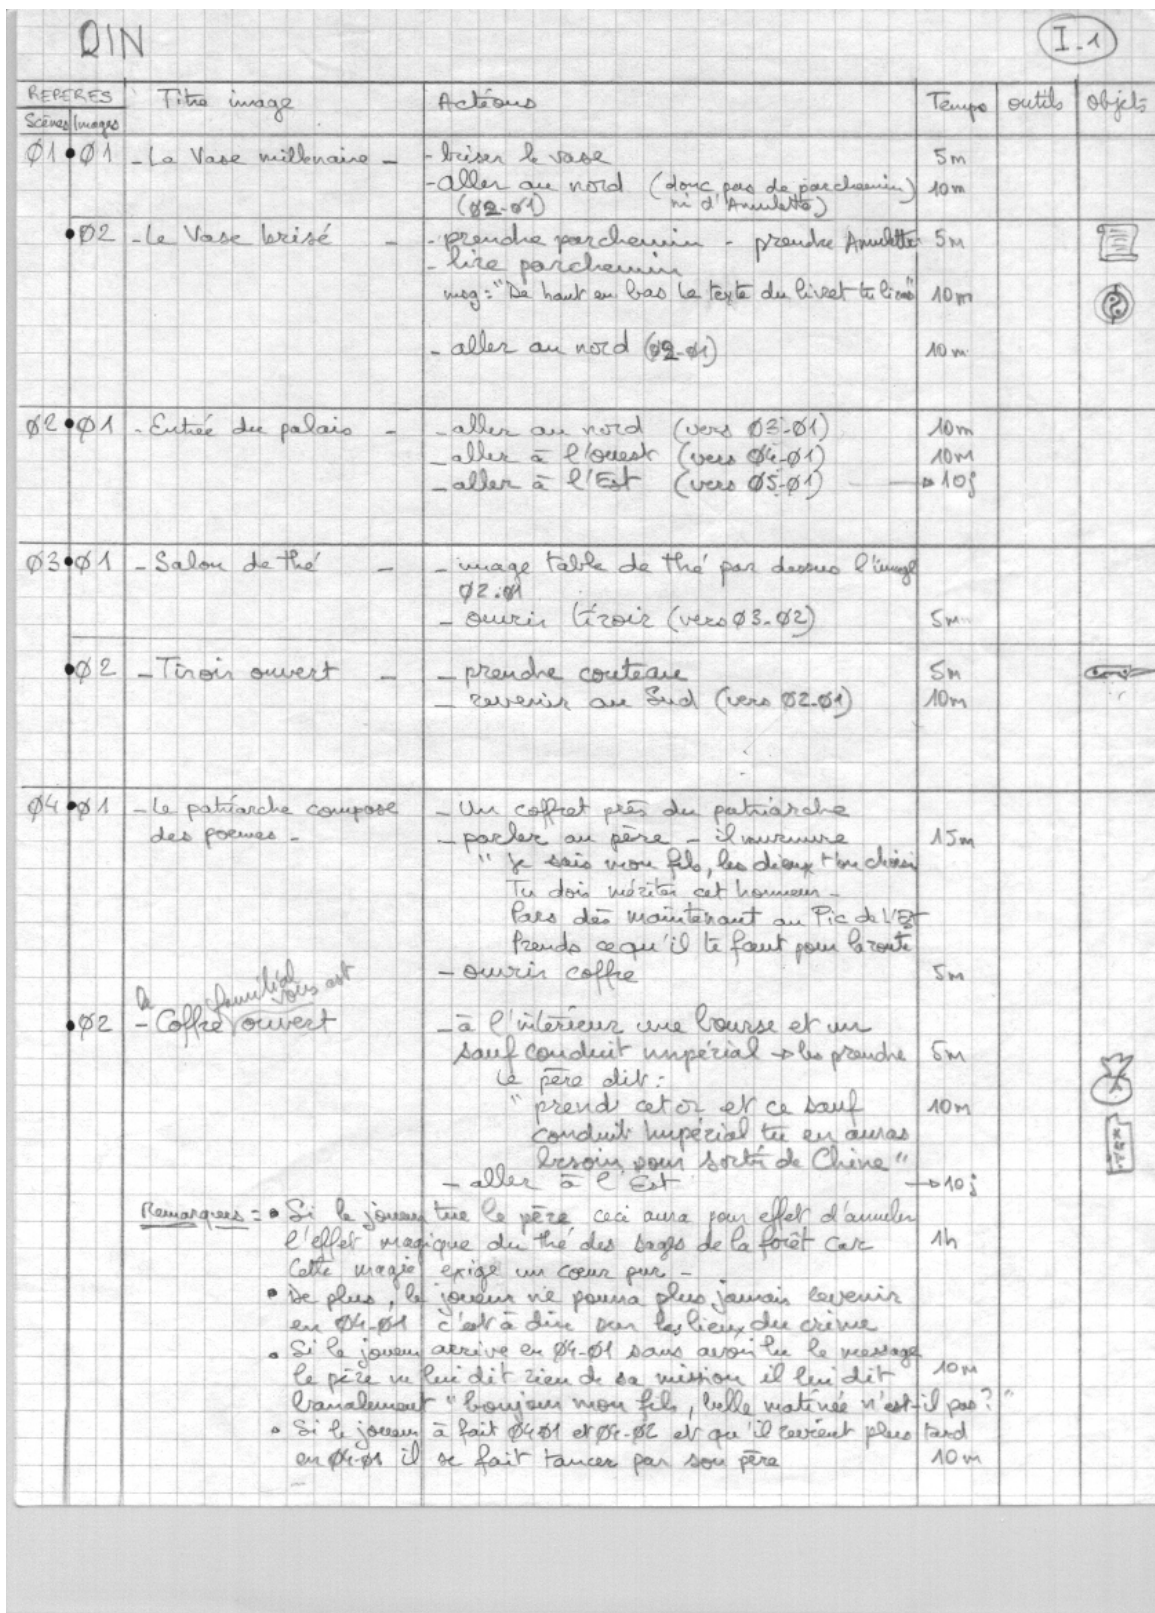 QIN
I.1
REPERES Titre image Actions Temps outils objets
Scènes Images
Ø1 Ø1 - Le Vase millenaire - - briser le vase 5m
- aller au nord (donc pas de parchemin) 10m
(Ø2-Ø1) ni d'Amulette)
Ø2 - Le Vase brisé - - prendre parchemin - prendre Amulette 5m
- lire parchemin
msg = "De haut en bas le texte du livret tu liras" 10m
- aller au nord (Ø2-Ø1) 10m
Ø2 Ø1 - Entrée du palais - - aller au nord (vers Ø3-Ø1) 10m
- aller à l'ouest (vers Ø4-Ø1) 10m
- aller à l'Est (vers Ø5-Ø1) → 10j
Ø3 Ø1 - Salon de thé - - image table de thé par dessus l'image
Ø2.Ø1
- ouvrir tiroir (vers Ø3-Ø2) 5m
Ø2 - Tiroir ouvert - - prendre couteau 5m
- revenir au Sud (vers Ø2-Ø1) 10m
Ø4 Ø1 - Le patriarche compose - Un coffret près du patriarche
des poemes - - parler au père - il murmure 15m
" je sais mon fils, les dieux t'on choisi
Tu dois mériter cet honneur -
Pars dès maintenant au Pic de l'Est
Prends ce qu'il te faut pour la route
- ouvrir coffre 5m
le familial vous est
Ø2 - Coffre ouvert - à l'intérieur une bourse et un
sauf conduit impérial → les prendre 5m
le père dit :
" prend cet or et ce sauf 10m
conduit Impérial tu en auras
besoin pour sortir de Chine "
- aller à l'Est → 10j
Remarques = • Si le joueur tue le père ceci aura pour effet d'annuler
l'effet magique du thé des sages de la forêt car 1h
Cette magie exige un cœur pur -
• De plus, le joueur ne pourra plus jamais revenir
en Ø4-Ø1 c'est à dire sur les lieux du crime
• Si le joueur arrive en Ø4-Ø1 sans avoir lu le message
le père ne lui dit rien de sa mission il lui dit 10m
banalement " bonjour mon fils, belle matinée n'est-il pas ? "
• Si le joueur à fait Ø4Ø1 et Ø4-Ø2 et qu'il revient plus tard
en Ø4-Ø1 il se fait tancer par son père 10m